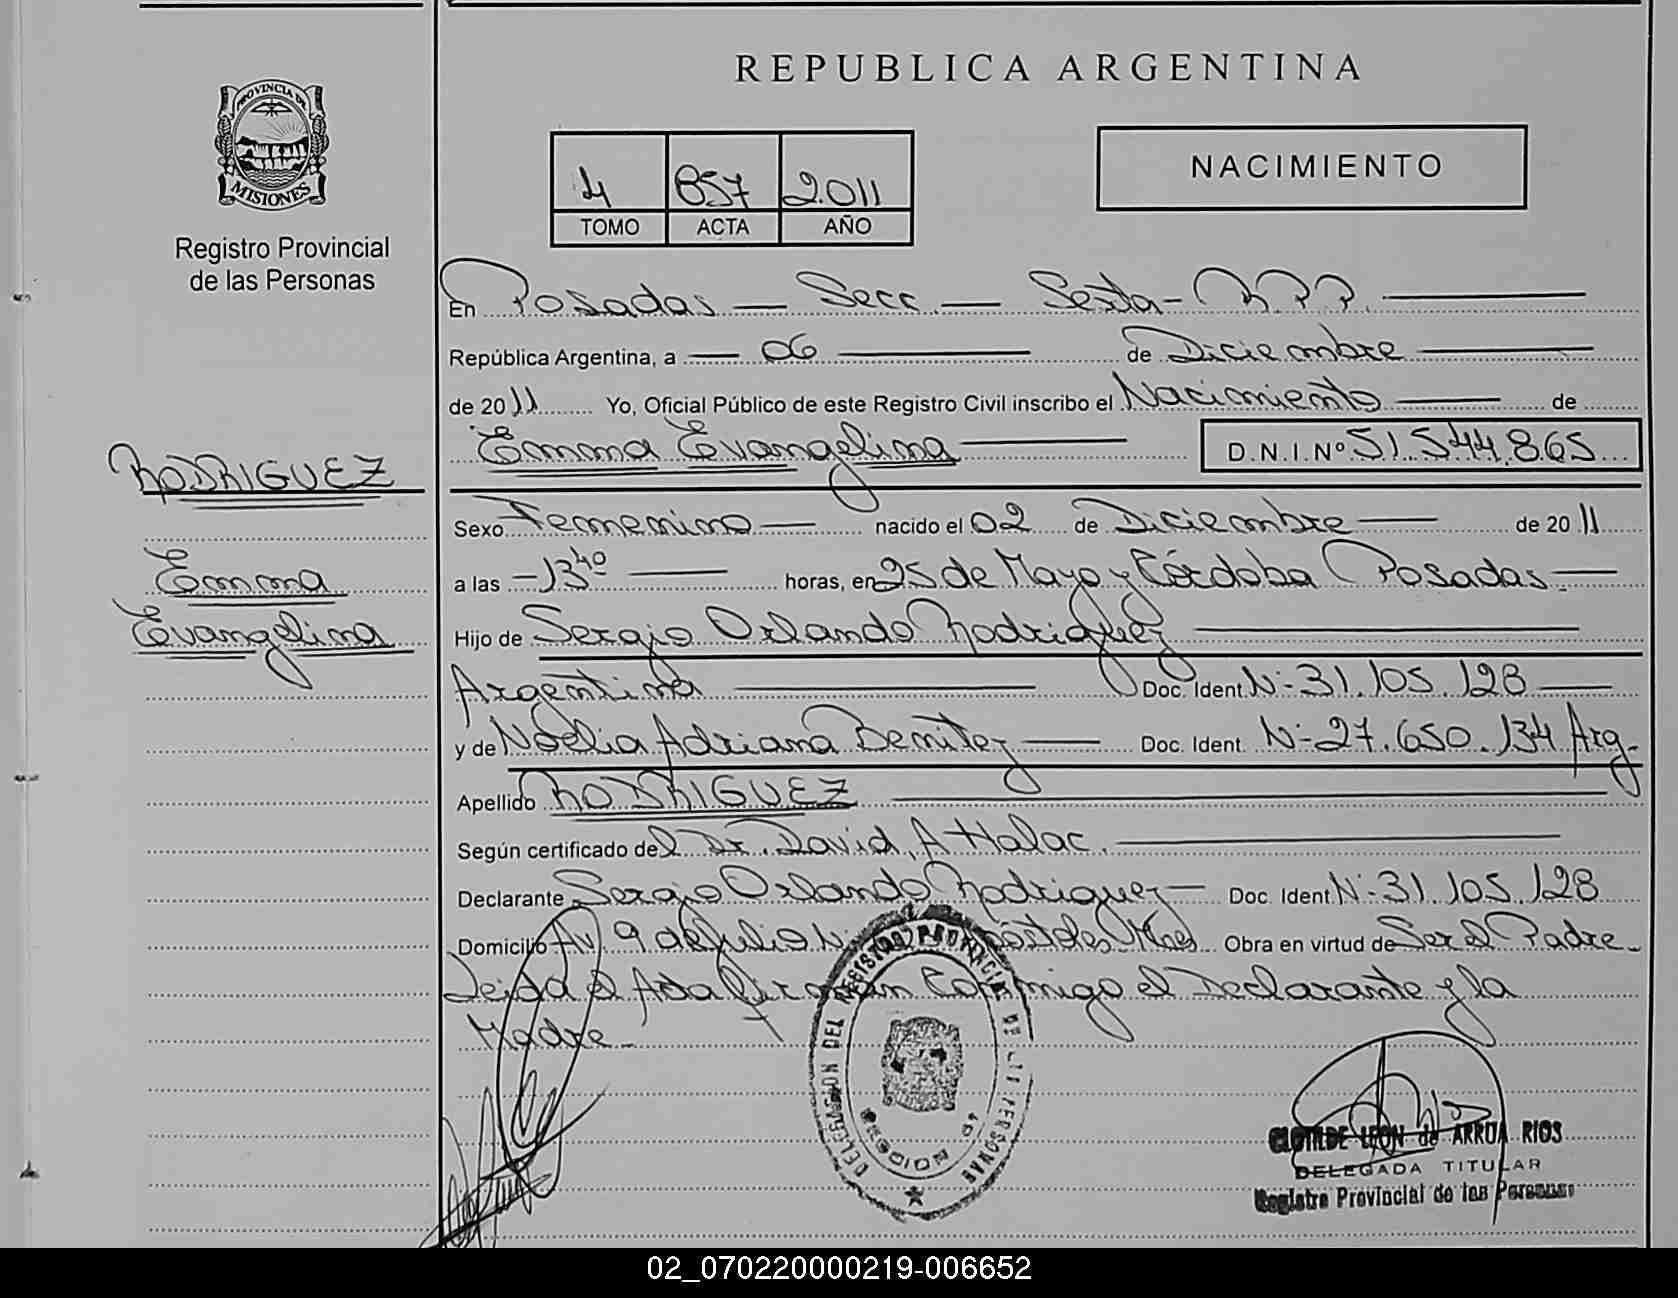 REPUBLICA ARGENTINA
PROVINCIA DE
MISIONES
Registro Provincial
de las Personas
4 857 2.011
TOMO ACTA AÑO
NACIMIENTO
En Posadas — Secc — Sexta - R.P.P.
República Argentina, a — 06 — de Diciembre —
de 2011 Yo, Oficial Público de este Registro Civil inscribo el Nacimiento — de
Emma Evangelina — D.N.I. Nº 51.544.865
RODRIGUEZ
Emma
Evangelina
Sexo Femenino — nacido el 02 de Diciembre — de 2011
a las — 13 40 — horas, en 25 de Mayo y Córdoba Posadas —
Hijo de Sergio Orlando Rodriguez —
Argentina — Doc. Ident. Nº 31.105.128 —
y de Noelia Adriana Benitez — Doc. Ident. Nº 27.650.134 Arg-
Apellido RODRIGUEZ —
Según certificado del Dr. David, A Halac. —
Declarante Sergio Orlando Rodriguez — Doc. Ident Nº 31.105.128
Domicilio Av 9 de Julio Apóstoles Mnes Obra en virtud de Ser el Padre -
Leida el Acta firman Conmigo el Declarante y la
Madre -
DELEGACION DEL REGISTRO PROVINCIAL DE LAS PERSONAS
REGION
CLOTILDE LEON de ARRUA RIOS
DELEGADA TITULAR
Registro Provincial de las Personas
02_070220000219-006652